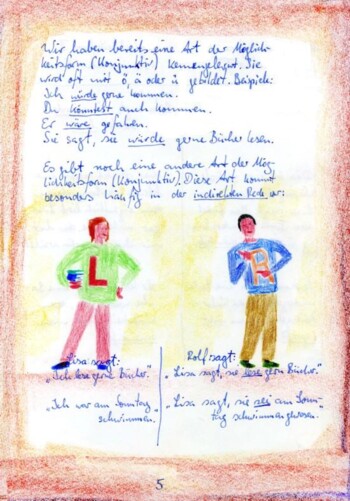 Wir haben bereits eine Art der Möglich-
keitsform (Konjunktiv) kennengelegt. Sie
wird oft mit ö, ä oder ü gebildet. Beispiele:
Ich würde gerne kommen.
Du könntest auch kommen.
Er wäre gefahren.
Sie sagt, sie würde gerne Bücher lesen.
Es gibt noch eine andere Art der Mög-
lichkeitsform (Konjunktiv). Diese Art kommt
besonders häufig in der indirekten Rede vor:
L
R
Lisa sagt:
„Ich lese gerne Bücher."
„Ich war am Sonntag
schwimmen.
Rolf sagt:
„Lisa sagt, sie lese gern Bücher."
„Lisa sagt, sie sei am Sonn-
tag schwimmen gewesen.
5